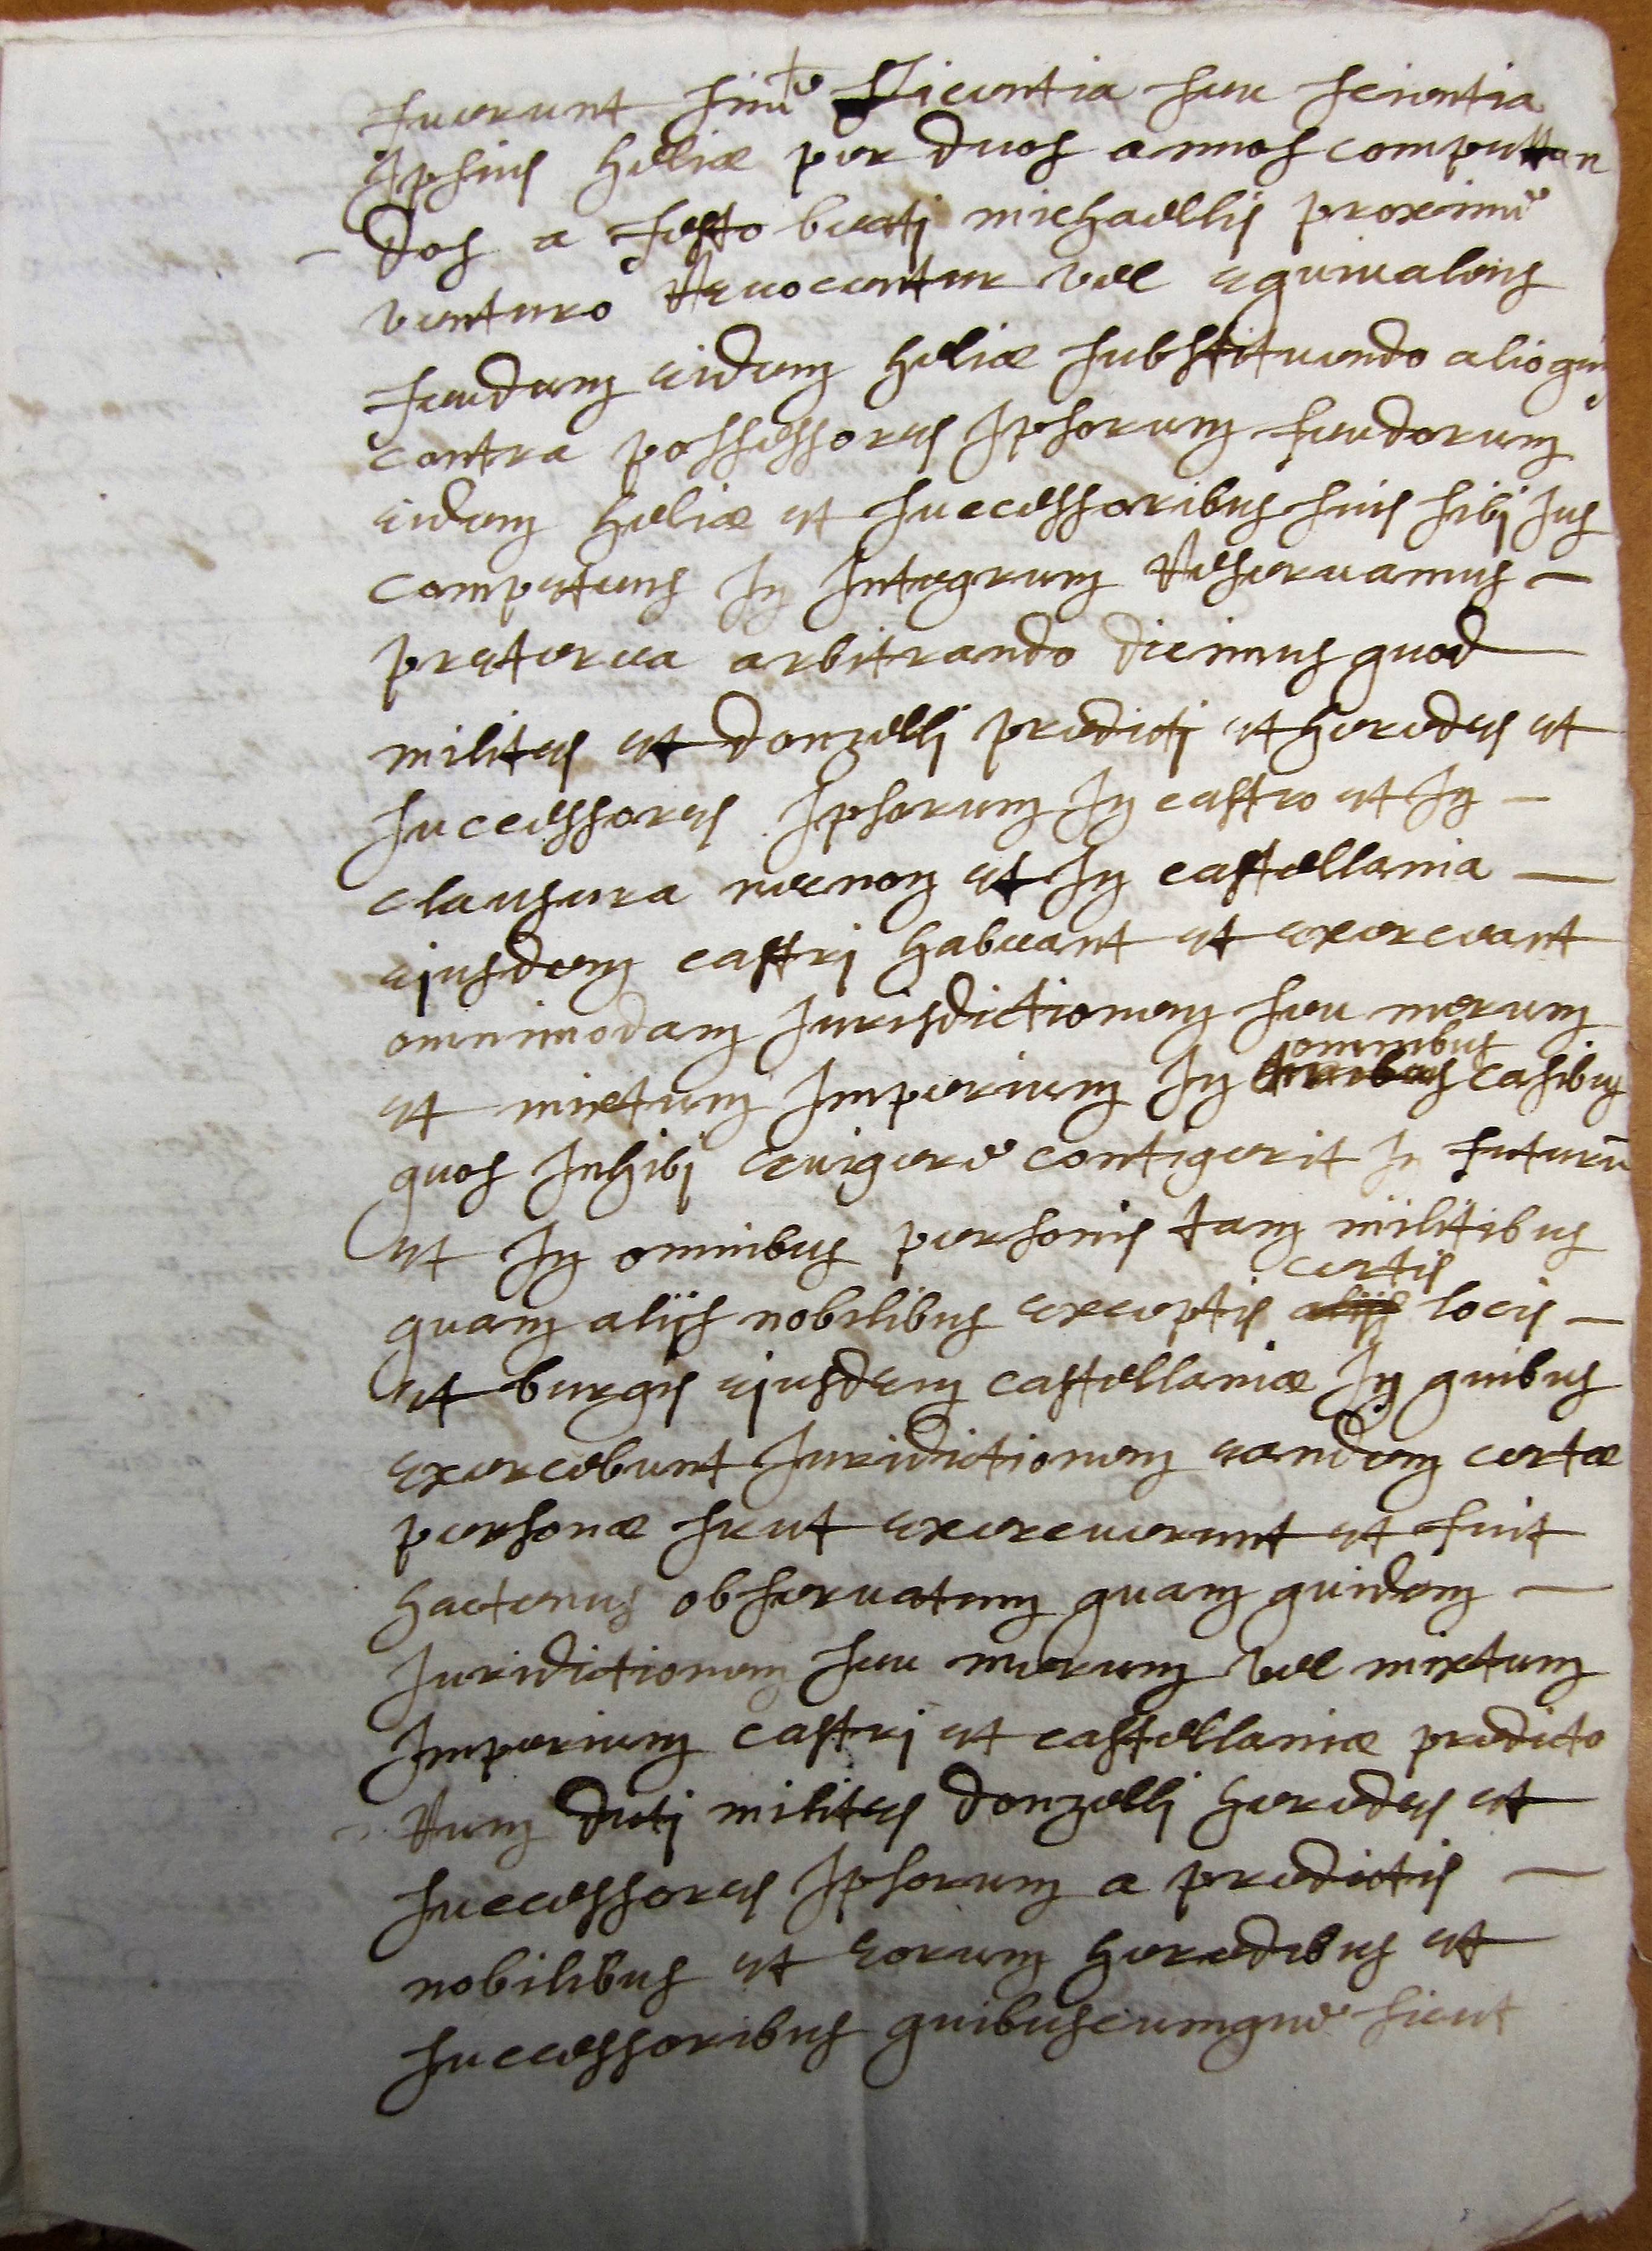 fuerunt sine licentia seu scientia
Ipsius heliæ per duos annos computtan
dos a festo beati michaellis proxime
venturo Revocentur vel equivalens
feudum eidem heliæ substituendo alioquin
contra possessores Ipsorum feudorum
eidem heliæ et successoribus suis sibi Jus
competens In Integrum Reservamus –
preterea arbitrando dicimus quod
milites et donzelli predicti et heredes et
successores Ipsorum In castro et In –
clausura necnon et In castellania –
ejusdem castri habeant et exerceant
omnimodam Jurisdictionem seu merum
omnibus
et mixtum Imperium In casibus
quos Inhibi evigere contigerit In futurū
et In omnibus personis tam militibus
certis
quam alijs nobilibus exceptis alijs locis –
et burgis ejusdem castellaniæ In quibus
exercebunt Juridictionem eandem certæ
personæ sicut exercuerunt et fuit
hactenus observatum quam quidem –
Juridictionem seu merum vel mixtum
Imperium castri et castellaniæ predicto
Rum dicti milites donzelli heredes et
successores Ipsorum a predictis –
nobilibus et eorum heredibus et
successoribus quibuscumque sicut